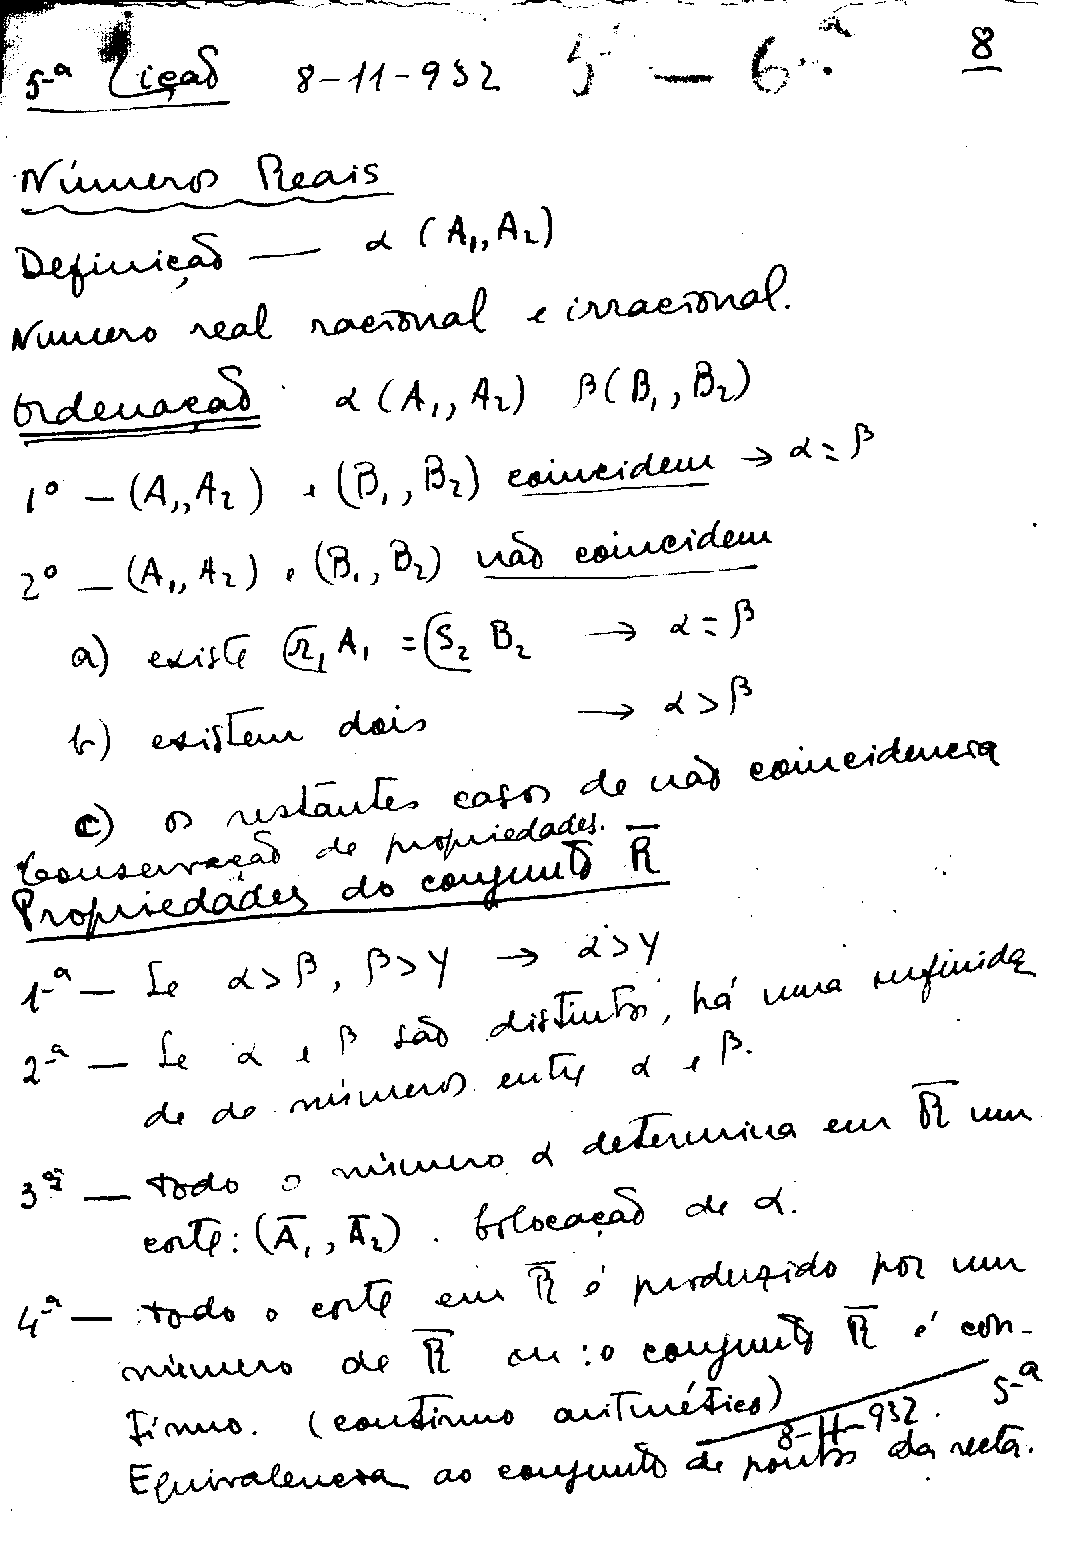 5-ª Lição 8-11-932 5 — 6.ª 8
Números Reais
Definição — α (A₁, A₂)
Numero real racional e irracional.
Ordenação α (A₁, A₂) β (B₁, B₂)
1º – (A₁, A₂) e (B₁, B₂) coincidem → α = β
2º – (A₁, A₂) e (B₁, B₂) não coincidem
a) existe r₁ A₁ = S₂ B₂ → α = β
b) existem dois → α > β
c) os restantes casos de não coincidencia
Conservação de propriedades.
Propriedades do conjunto R̅
1-ª — Se α > β, β > γ → α > γ
2-ª — Se α e β são distintos, há uma infinida
de de números entre α e β.
3ª — todo o número α determina em R̅ um
corte: (A̅₁, A̅₂). Colocação de α.
4-ª — todo o corte em R̅ é produzido por um
número de R̅ ou: o conjunto R̅ é con-
tínuo. (contínuo aritmético) 8-11-932. 5-ª
Equivalencia ao conjunto de pontos da recta.